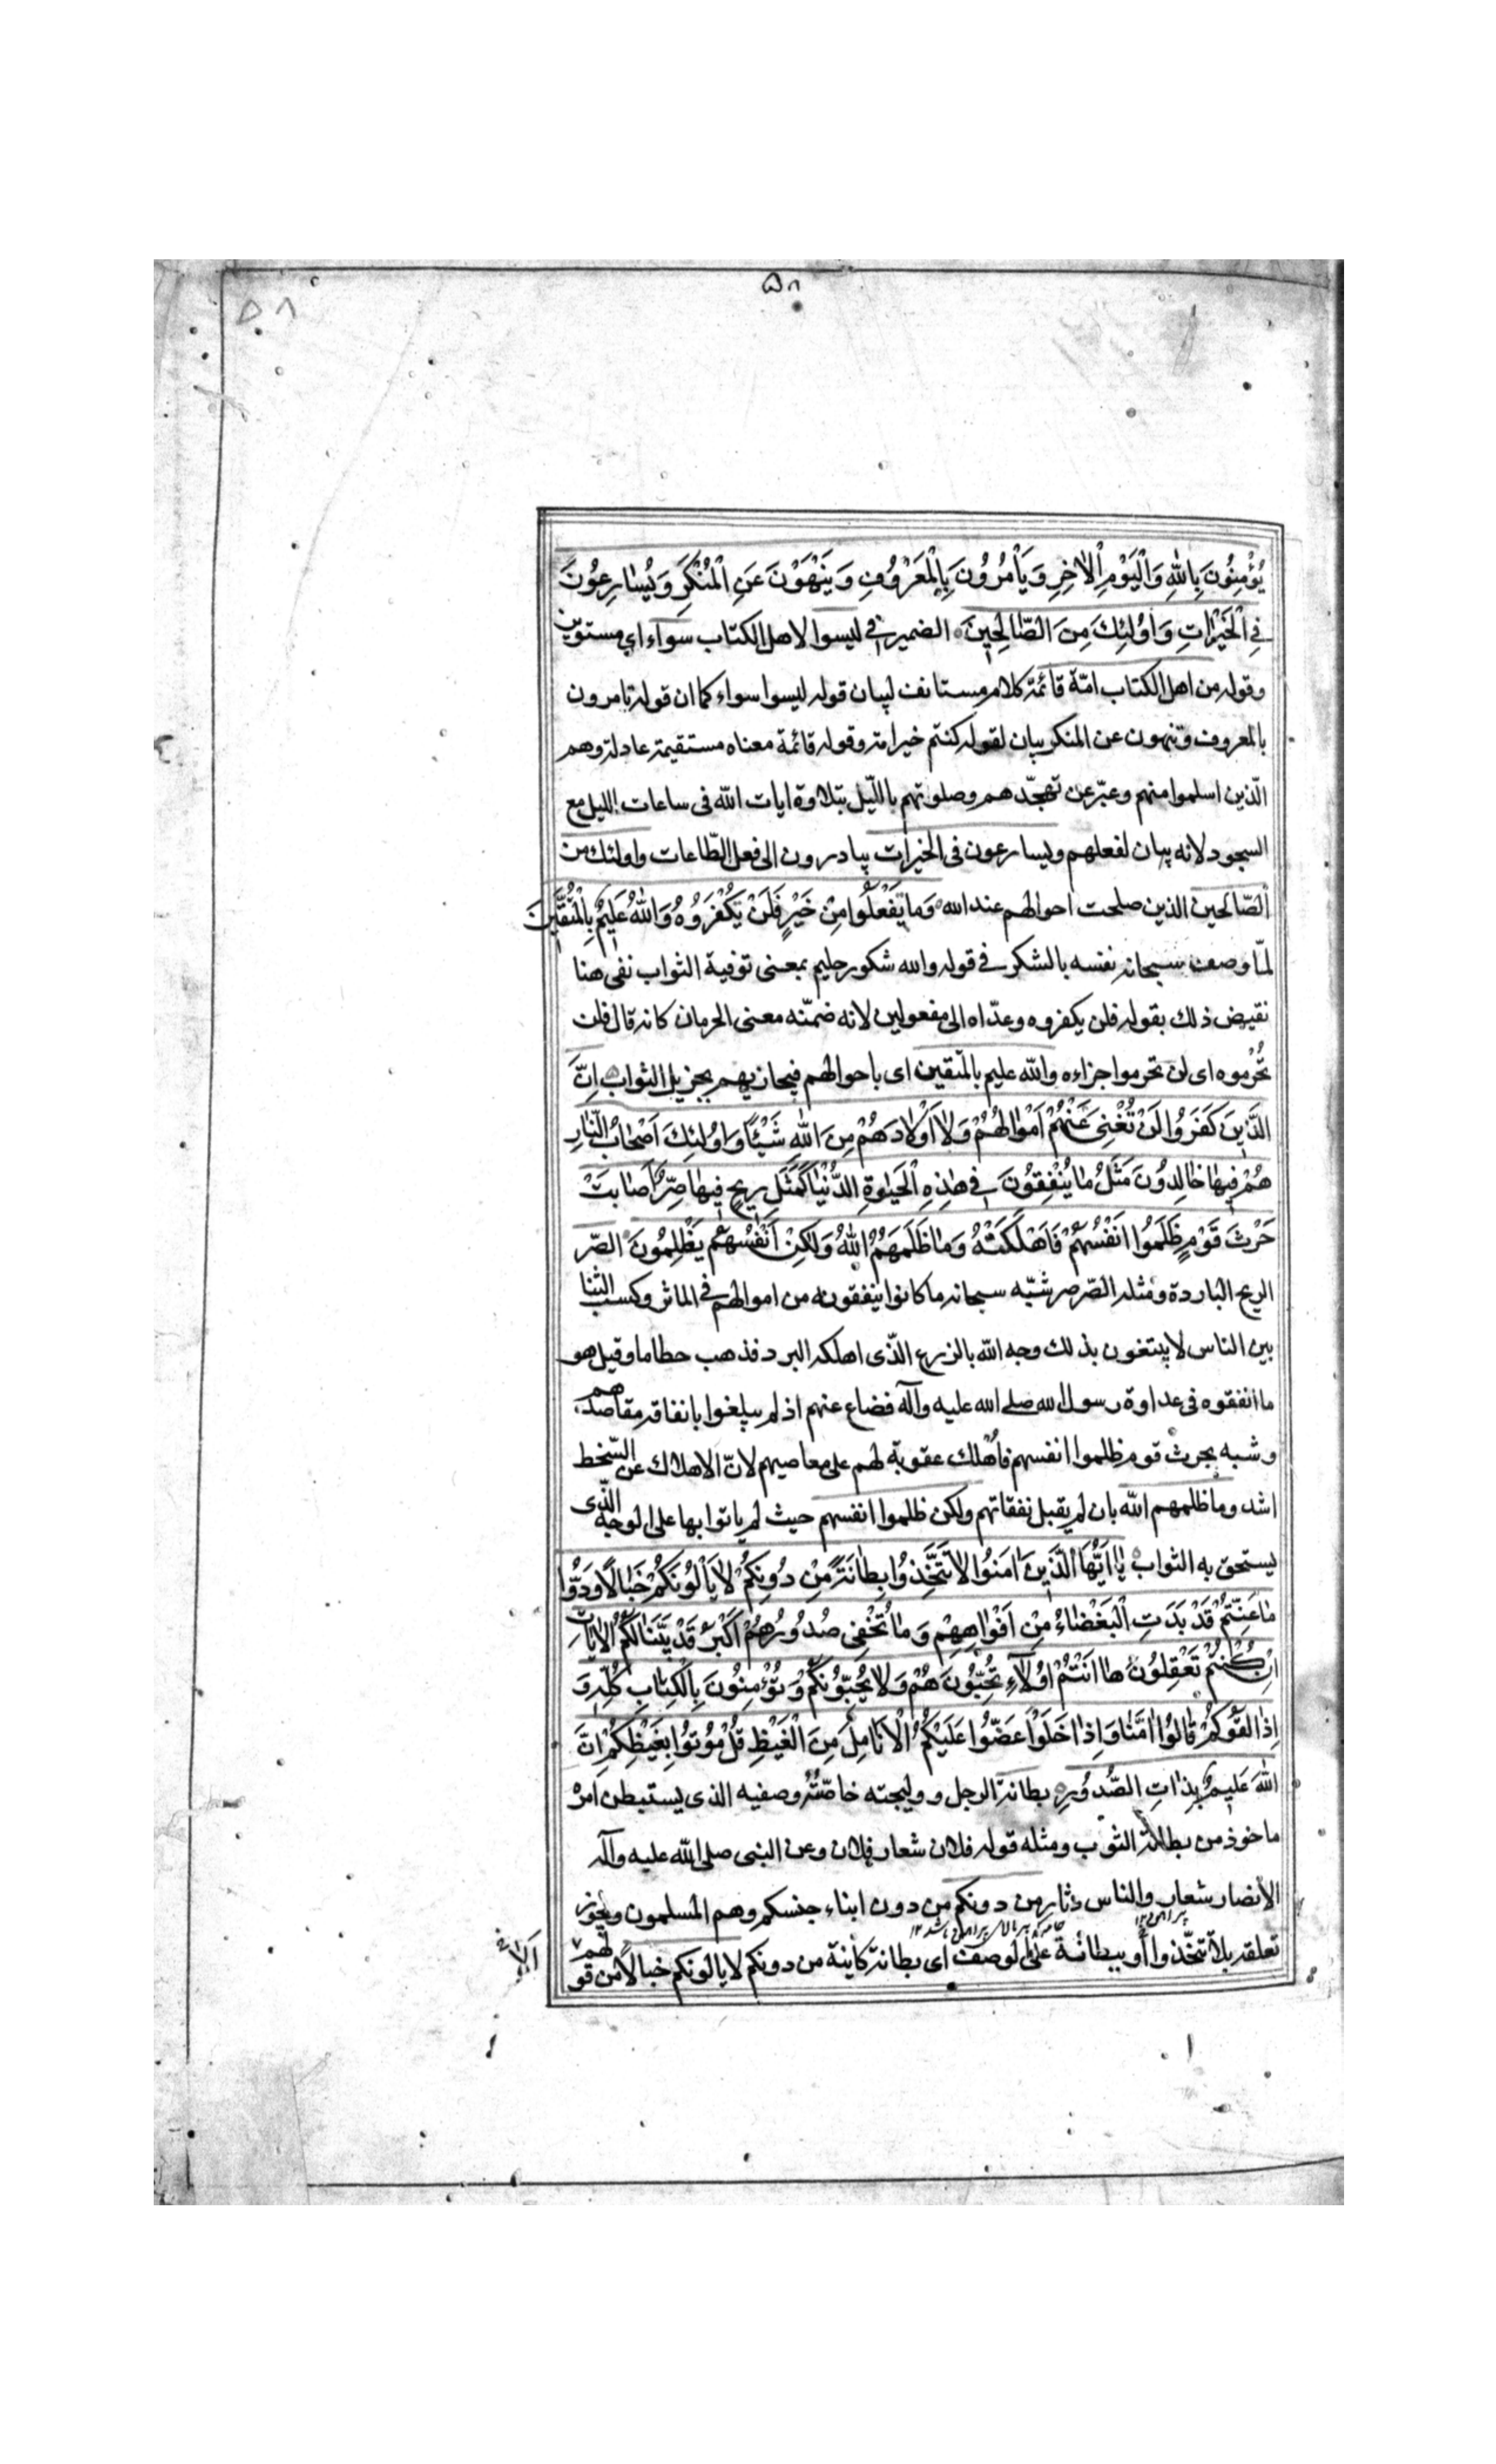 ۵۸
۵۸
يُؤْمِنُونَ بِاللهِ وَالْيَوْمِ الْاٰخِرِ وَيَاْمُرُونَ بِالْمَعْرُوفِ وَيَنْهَوْنَ عَنِ الْمُنْكَرِ وَيُسٰارِعُونَ
فِي الْخَيْرٰاتِ وَاُولٰئِكَ مِنَ الصّٰالِحِينَ الضمير في ليسوا لاهل الكتاب سواء اي مستوين
وقوله من اهل الكتاب امّة قائمة كلام مستانف لبيان قوله ليسوا سواء كما ان قوله تامرون
بالمعروف وتنهون عن المنكر بيان لقوله كنتم خير امة وقوله قائمة معناه مستقيمة عادلة وهم
الّذين اسلموا منهم وعبّر عن تهجّدهم وصلوتهم بالليّل بتلاوة ايات الله فى ساعات الليل مع
السجود لانه بيان لفعلهم ويسارعون فى الخيرات يبادرون الى فعل الطّاعات واولئك من
الصّالحين الذين صلحت احوالهم عند الله وَمٰا يَفْعَلُوا مِنْ خَيْرٍ فَلَنْ يُكْفَرُوهُ وَاللهُ عَلِيمٌ بِالْمُتَّقِينَ
لمّا وصف سبحانه نفسه بالشكر في قوله والله شكور حليم بمعنى توفية الثواب نفى هنا
نقيض ذلك بقوله فلن يكفروه وعدّاه الى مفعولين لانه ضمّنه معنى الحرمان كانه قال فلن
تُحْرموه اى لن تحرموا جزاءه والله عليم بالمتقين اى باحوالهم فيجازيهم بجزيل الثواب اِنَّ
الَّذِينَ كَفَرُوا لَنْ تُغْنِىَ عَنْهُمْ اَمْوٰالُهُمْ وَلاٰ اَوْلاٰدُهُمْ مِنَ اللهِ شَيْئًا وَاُولٰئِكَ اَصْحٰابُ النّٰارِ
هُمْ فِيهٰا خٰالِدُونَ مَثَلُ مٰا يُنْفِقُونَ فِي هٰذِهِ الْحَيٰوةِ الدُّنْيٰا كَمَثَلِ رِيحٍ فِيهٰا صِرٌّ اَصٰابَتْ
حَرْثَ قَوْمٍ ظَلَمُوا اَنْفُسَهُمْ فَاَهْلَكَتْهُ وَمٰا ظَلَمَهُمُ اللهُ وَلٰكِنْ اَنْفُسَهُمْ يَظْلِمُونَ الصّر
الريح الباردة ومثله الصّرصر شبّه سبحانه ما كانوا ينفقونه من اموالهم في الماثر وكسب الثنا
بين الناس لا يبتغون بذلك وجه الله بالزرع الّذى اهلكه البرد فذهب حطاما وقيل هو
ما انفقوه فى عداوة رسول الله صلى الله عليه وآله فضاع عنهم اذ لم يبلغوا بانفاقه مقاصدهم
وشبه بحرث قوم ظلموا انفسهم فاهلك عقوبة لهم على معاصيهم لانّ الاهلاك عن السّخط
اشد وما ظلمهم الله بان لم يقبل نفقاتهم ولكن ظلموا انفسهم حيث لم ياتوا بها على الوجه الّذى
يستحق به الثواب يٰا اَيُّهَا الَّذِينَ اٰمَنُوا لاٰ تَتَّخِذُوا بِطٰانَةً مِنْ دُونِكُمْ لاٰ يَاْلُونَكُمْ خَبٰالًا وَدُّوا
مٰا عَنِتُّمْ قَدْ بَدَتِ الْبَغْضٰاءُ مِنْ اَفْوٰاهِهِمْ وَمٰا تُخْفِى صُدُورُهُمْ اَكْبَرُ قَدْ بَيَّنّٰا لَكُمُ الْاٰيٰاتِ
اِنْ كُنْتُمْ تَعْقِلُونَ هٰا اَنْتُمْ اُولاٰءِ تُحِبُّونَهُمْ وَلاٰ يُحِبُّونَكُمْ وَتُؤْمِنُونَ بِالْكِتٰابِ كُلِّهِ وَ
اِذٰا لَقُوكُمْ قٰالُوا اٰمَنّٰا وَاِذٰا خَلَوْا عَضُّوا عَلَيْكُمُ الْاَنٰامِلَ مِنَ الْغَيْظِ قُلْ مُوتُوا بِغَيْظِكُمْ اِنَّ
اللهَ عَلِيمٌ بِذٰاتِ الصُّدُورِ بطانة الرجل ووليجته خاصّته وصفيه الذى يستبطن امره
ماخوذ من بطانة الثوب ومثله قوله فلان شعار فلان وعن النبى صلى الله عليه وآله
الأنصار شعار والناس دثار من دونكم من دون ابناء جنسكم وهم المسلمون ويجوز
تعلقه بلا تتخّذوا أو ببطانة على الوصف اى بطانة كاينة من دونكم لا يالونكم خبالا من قولهم